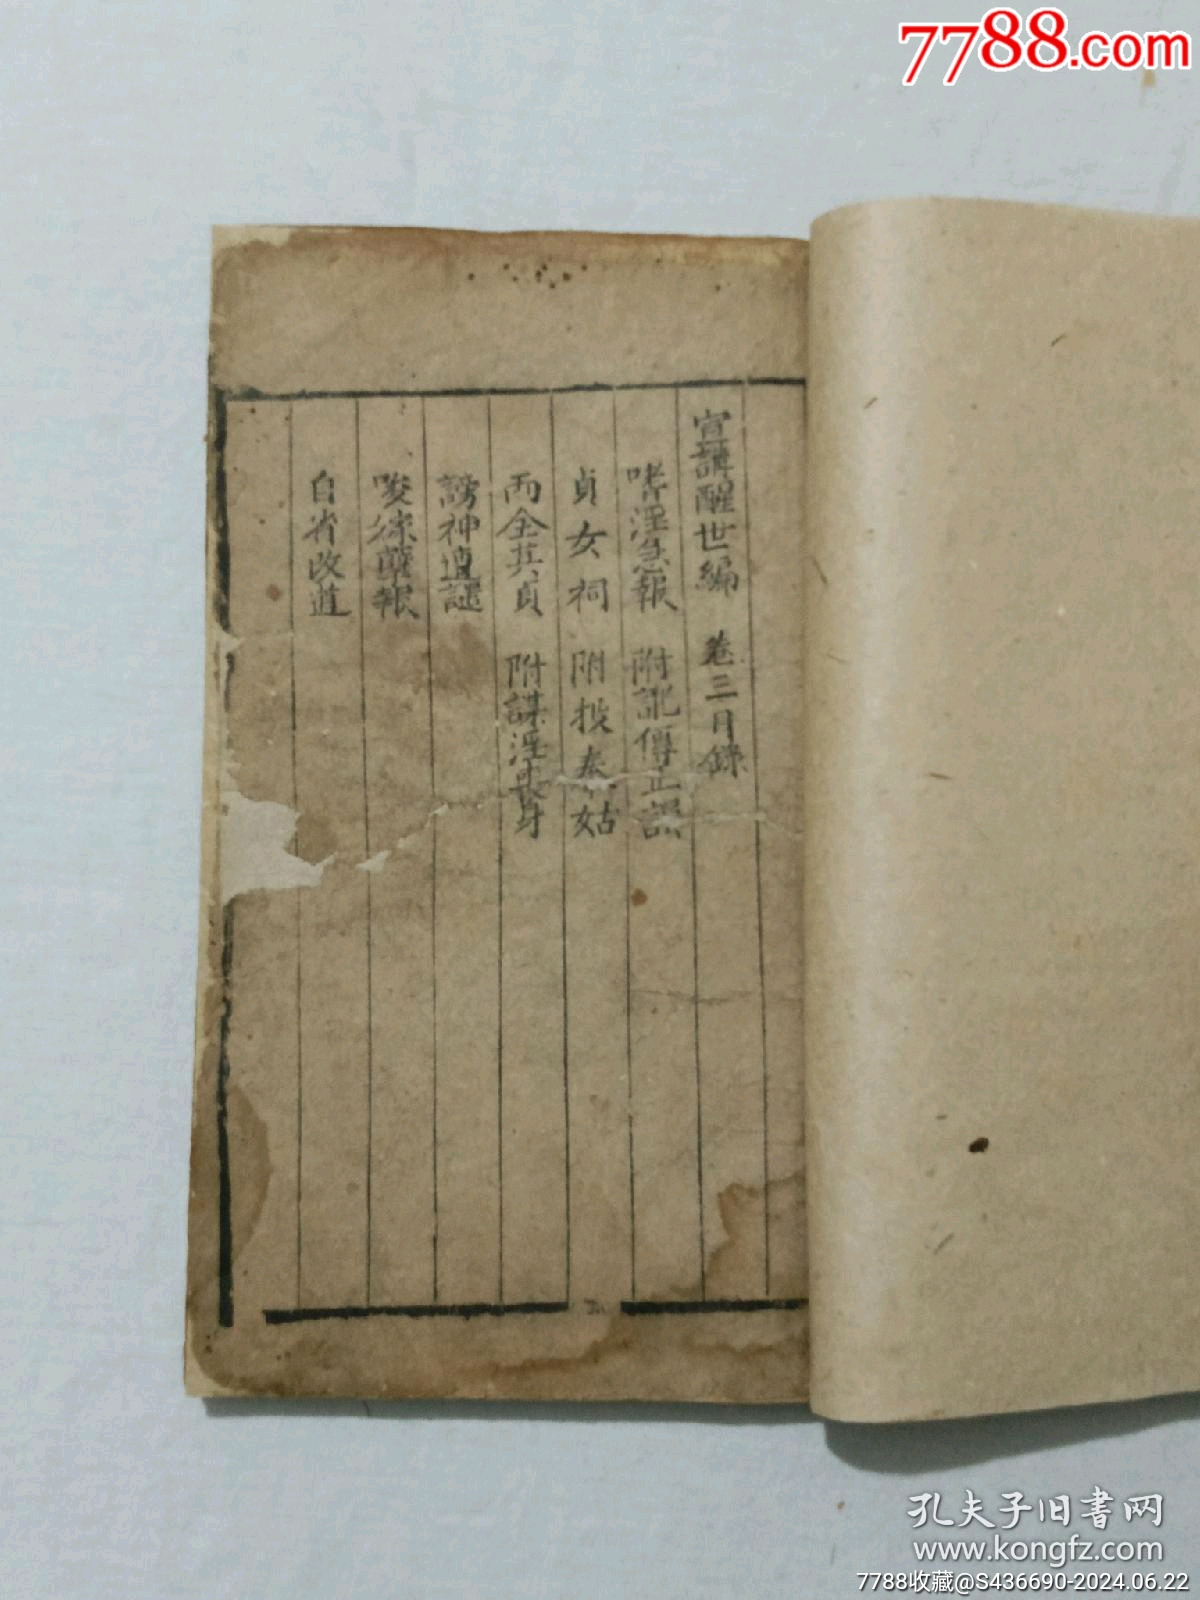 7788.com
宣講醒世編 卷三目錄
嗜淫急報 附訛傳正誤
貞女祠 附投秦姑
兩全其貞 附謀淫喪身
謗神遣譴
唆淙孽報
自省改道
孔夫子旧書网
www.kongfz.com
7788收藏@S436690-2024.06.22